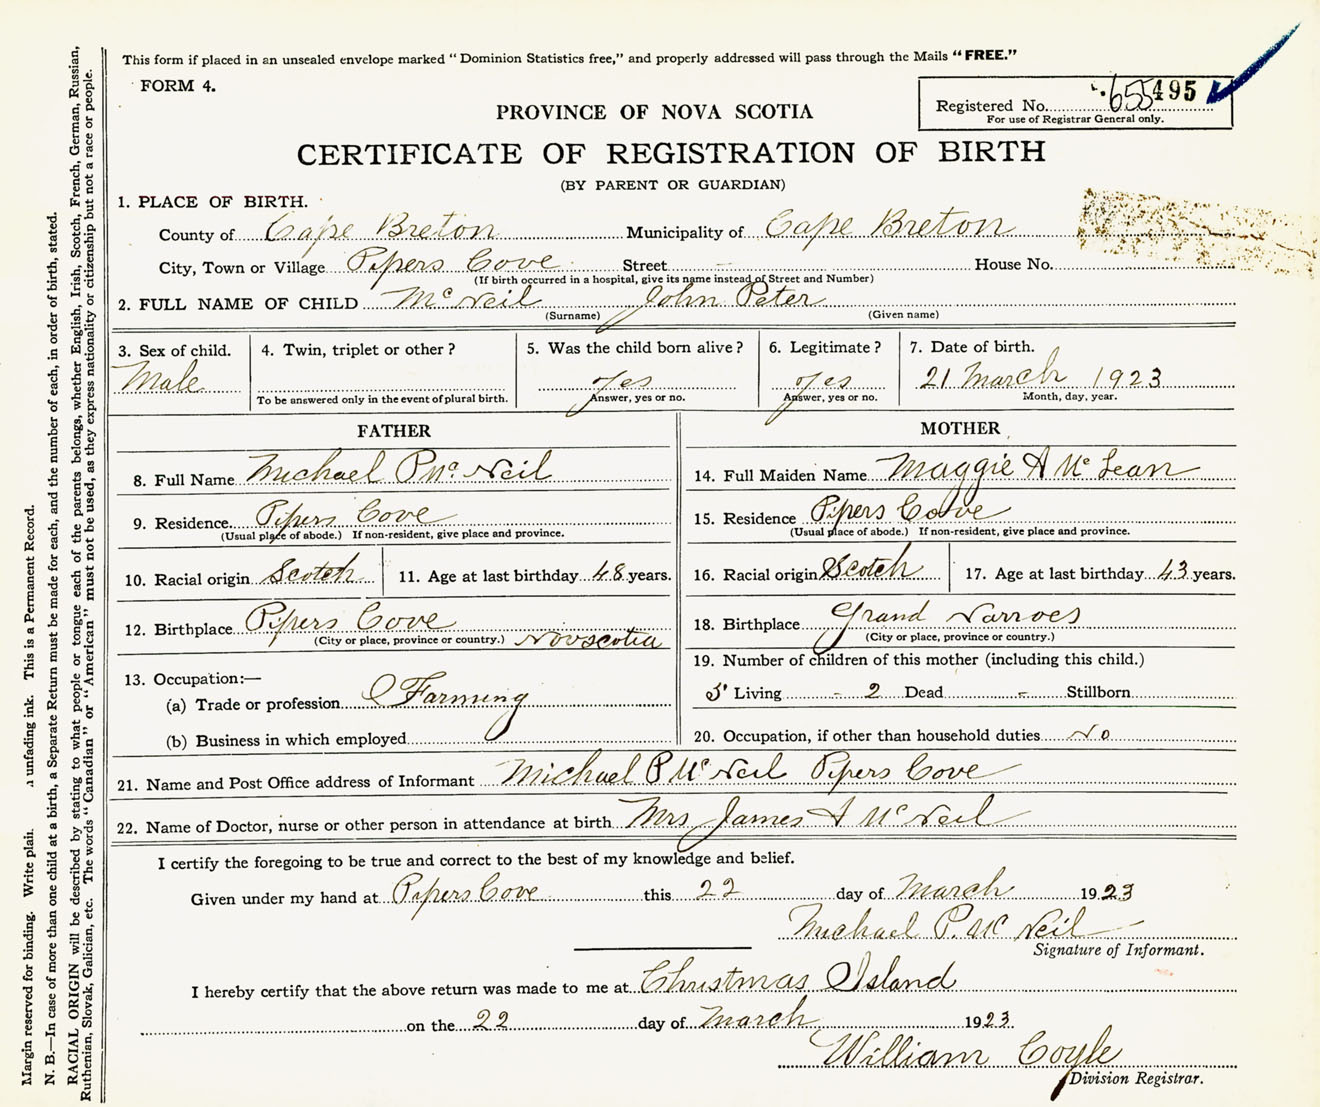 This form if placed in an unsealed envelope marked "Dominion Statistics free," and properly addressed will pass through the Mails "FREE."
FORM 4.
Registered No. 655495
For use of Registrar General only.
PROVINCE OF NOVA SCOTIA
CERTIFICATE OF REGISTRATION OF BIRTH
(BY PARENT OR GUARDIAN)
1. PLACE OF BIRTH.
County of Cape Breton Municipality of Cape Breton
City, Town or Village Pipers Cove Street - House No.
(If birth occurred in a hospital, give its name instead of Street and Number)
2. FULL NAME OF CHILD McNeil John Peter
(Surname) (Given name)
3. Sex of child. 4. Twin, triplet or other? 5. Was the child born alive? 6. Legitimate? 7. Date of birth.
Male yes yes 21 March 1923
To be answered only in the event of plural birth. Answer, yes or no. Answer, yes or no. Month, day, year.
FATHER
8. Full Name Michael P McNeil
9. Residence. Pipers Cove
(Usual place of abode.) If non-resident, give place and province.
10. Racial origin Scotch 11. Age at last birthday 48 years.
12. Birthplace Pipers Cove
(City or place, province or country.) Novscotia
13. Occupation:—
(a) Trade or profession Farming
(b) Business in which employed
MOTHER
14. Full Maiden Name Maggie A McLean
15. Residence Pipers Cove
(Usual place of abode.) If non-resident, give place and province.
16. Racial origin Scotch 17. Age at last birthday 43 years.
18. Birthplace Grand Narroes
(City or place, province or country.)
19. Number of children of this mother (including this child.)
5 Living - 2 Dead - Stillborn
20. Occupation, if other than household duties No
21. Name and Post Office address of Informant Michael P McNeil Pipers Cove
22. Name of Doctor, nurse or other person in attendance at birth Mrs James A McNeil
I certify the foregoing to be true and correct to the best of my knowledge and belief.
Given under my hand at Pipers Cove this 22 day of March 1923
Michael P. McNeil
Signature of Informant.
I hereby certify that the above return was made to me at Christmas Island
on the 22 day of March 1923
William Coyle
Division Registrar.
Margin reserved for binding. Write plai unfading ink. This is a Permanent Record.
N. B.—In case of more than one child at a birth, a Separate Return must be made for each, and the number of each, in order of birth, stated.
RACIAL ORIGIN will be described by stating to what people or tongue each of the parents belongs, whether English, Irish, Scotch, French, German, Russian,
Ruthenian, Slovak, Galician, etc. The words "Canadian" or "American" must not be used, as they express nationality or citizenship but not a race or people.